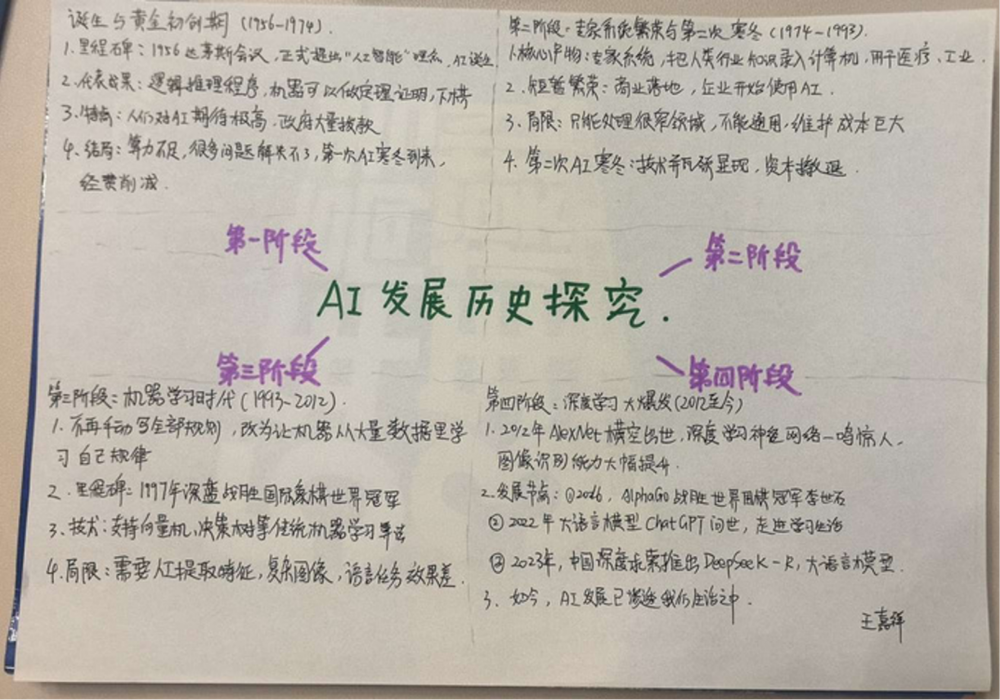 诞生与黄金初创期（1956-1974）
1.里程碑：1956达莱斯会议，正式提出“人工智能”概念，AI诞生
2.代表成果：逻辑推理程序，机器可以做定理证明，下棋
3.特点：人们对AI期待极高，政府大量拨款
4.结局：算力不足，很多问题解决不了，第一次AI寒冬到来，
经费削减．
第二阶段：专家系统繁荣与第二次寒冬（1974-1993）．
1.核心产物：专家系统，把人类行业知识录入计算机，用于医疗、工业．
2.短暂繁荣：商业落地，企业开始使用AI．
3.局限：只能处理很窄领域，不能通用，维护成本巨大
4.第二次AI寒冬：技术瓶颈显现，资本撤退．
第一阶段
第二阶段
AI发展历史探究．
第三阶段
第四阶段
第三阶段：机器学习时代（1993-2012）．
1.不再手动写全部规则，改为让机器从大量数据里学
习自己规律
2.里程碑：1997年深蓝战胜国际象棋世界冠军
3.技术：支持向量机、决策树等传统机器学习算法
4.局限：需要人工提取特征，复杂图像，语言任务效果差．
第四阶段：深度学习大爆发（2012至今）
1.2012年AlexNet横空出世，深度学习神经网络一鸣惊人．
图像识别能力大幅提升．
2.发展节点：①2016，AlphaGo战胜世界围棋冠军李世石
②2022年大语言模型ChatGPT问世，走进学习生活
③2023年，中国深度求索推出DeepSeek-R，大语言模型．
3．如今，AI发展已渗透我们生活之中．
王嘉祥